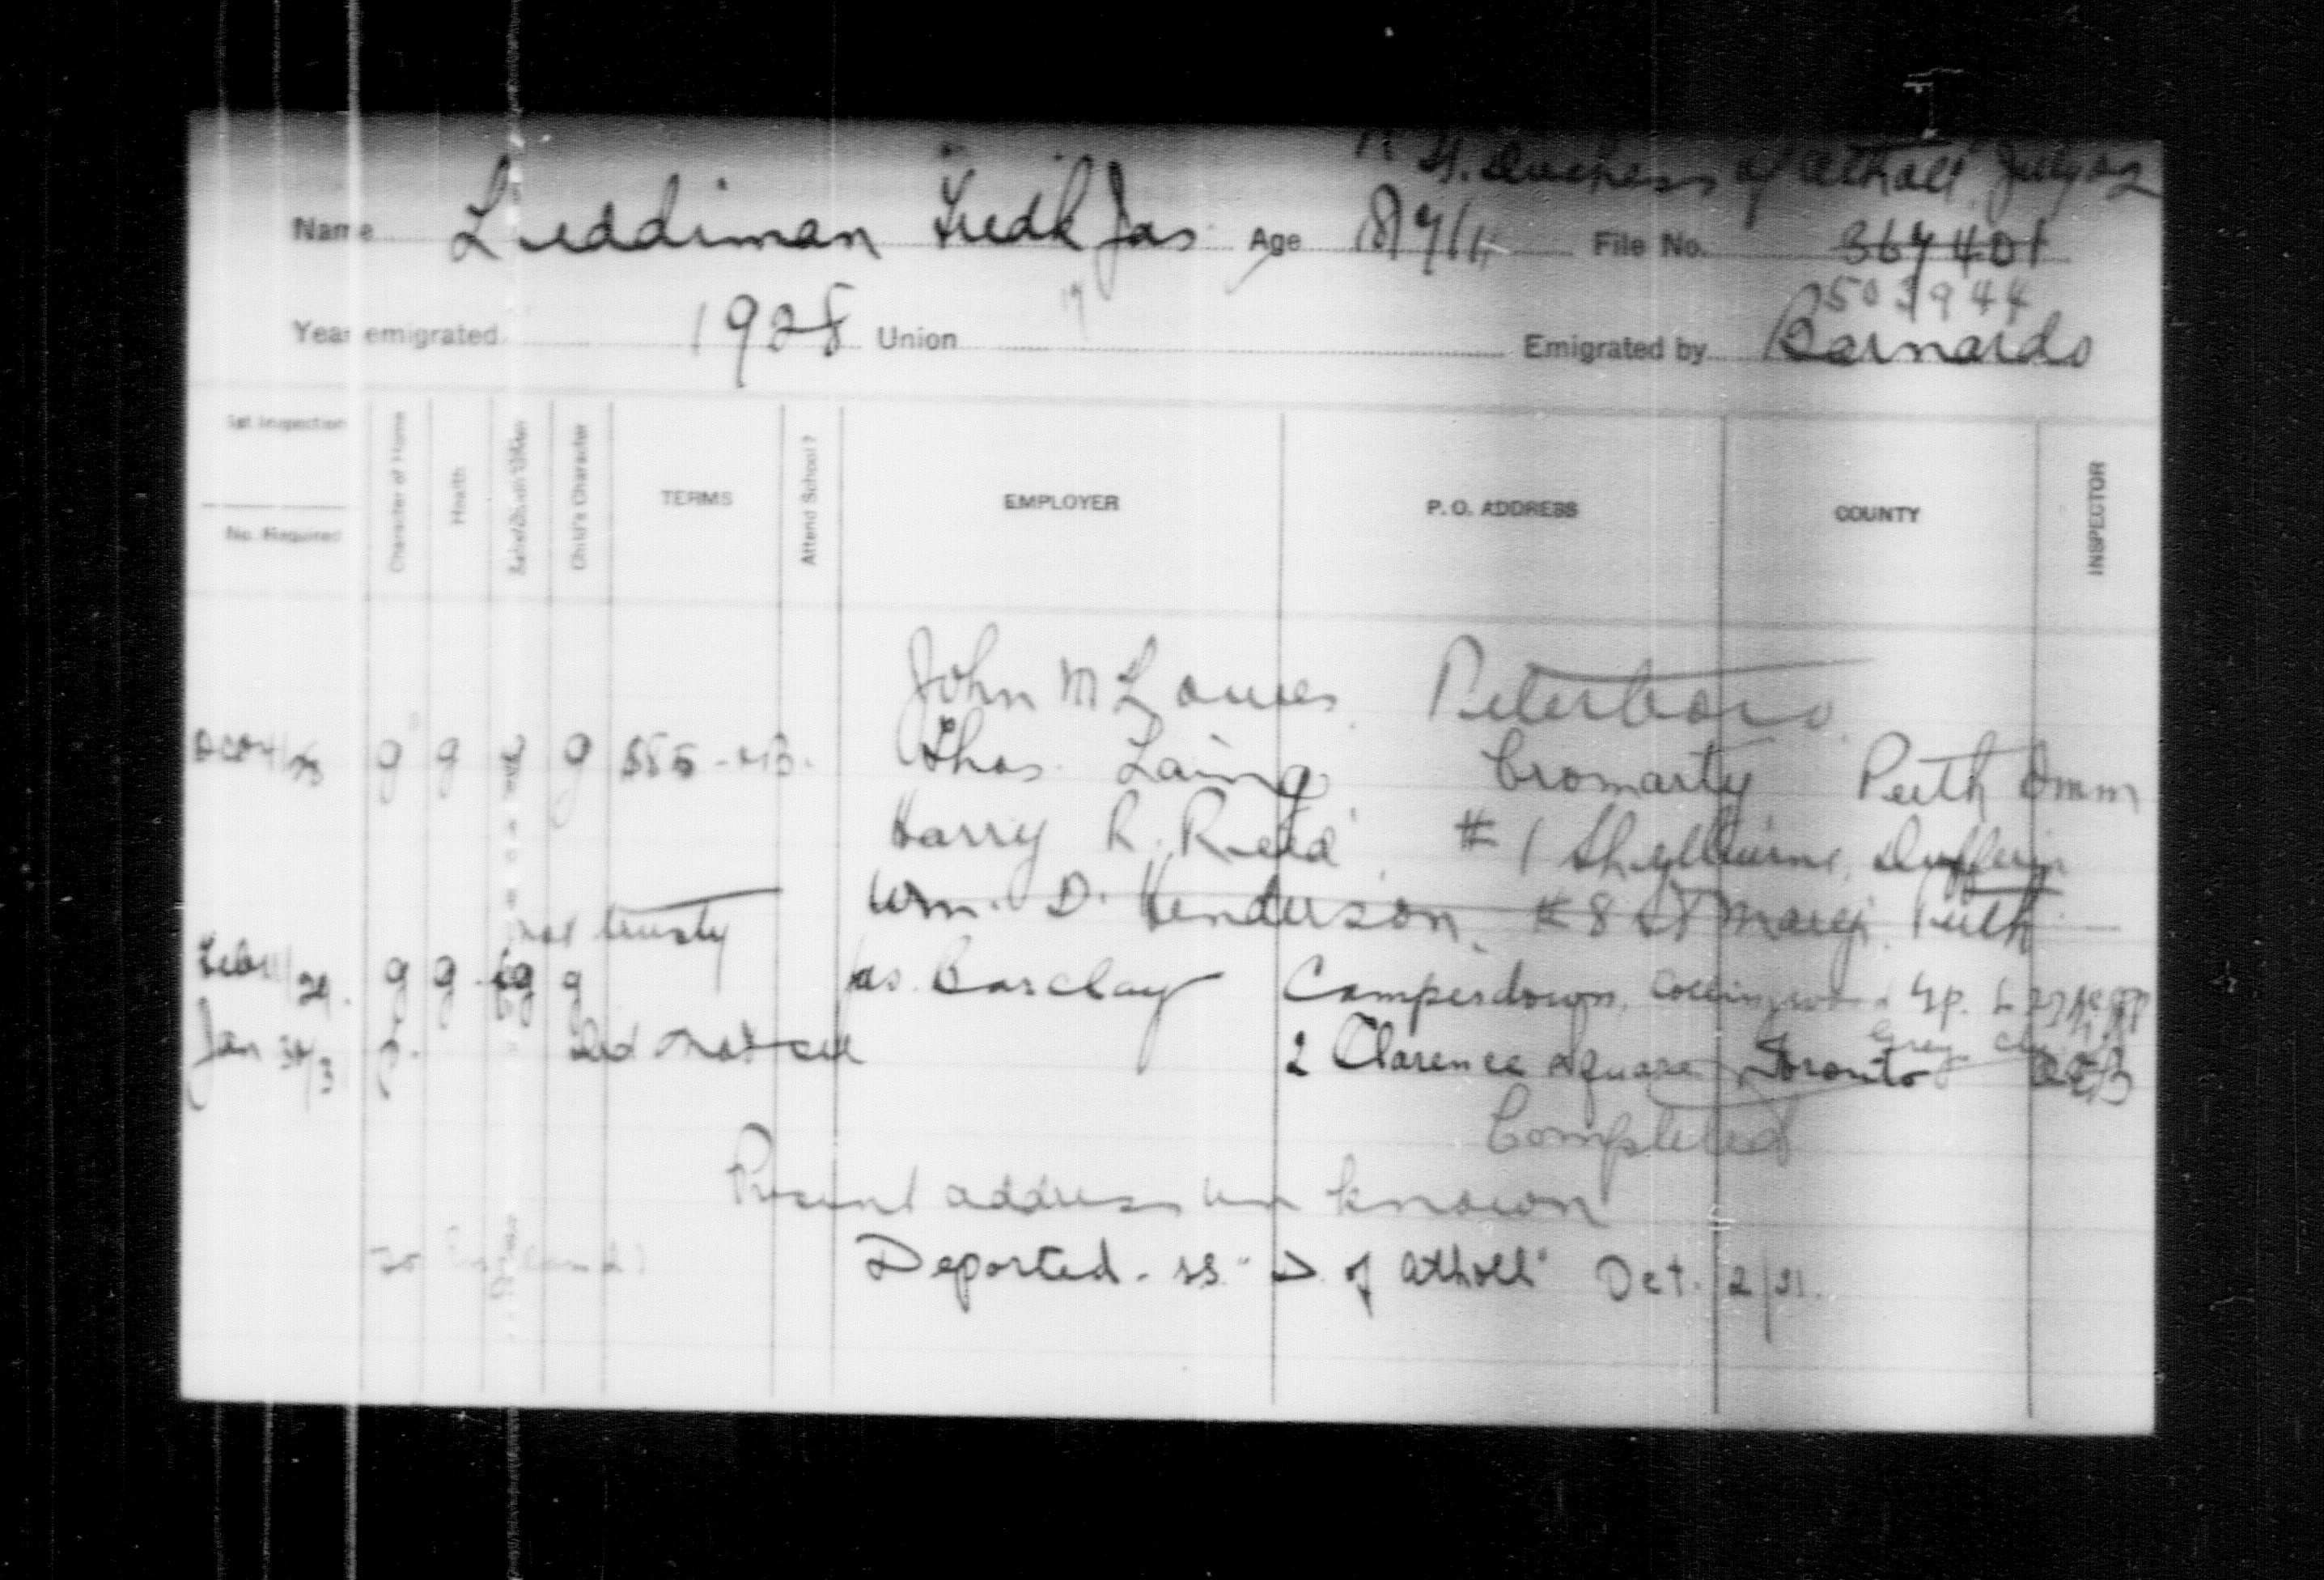 Duchess of Atholl July
Name Leddiman Fredk Jas Age File No. 367401
503944
Year emigrated 1928 Union Emigrated by Barnardo
1st Inspection
No. Required
Character of Home
Health
Child's Character
TERMS
Attend School?
EMPLOYER
P. O. ADDRESS
COUNTY
INSPECTOR
John M Lowes Peterboro
g g g Thos. Laing Cromarty Perth
Harry R. Reed #1 Shelburne, Dufferin
Wm. D. Henderson, #8 St Marys, Perth
not trusty
Feb g g g g Jas. Barclay Camperdown, Collingwood Tp.
Grey
Jan Did not see 2 Clarence Square Toronto
Completed
Present address unknown
Deported - ss "D. of Atholl" Oct. 2/31.